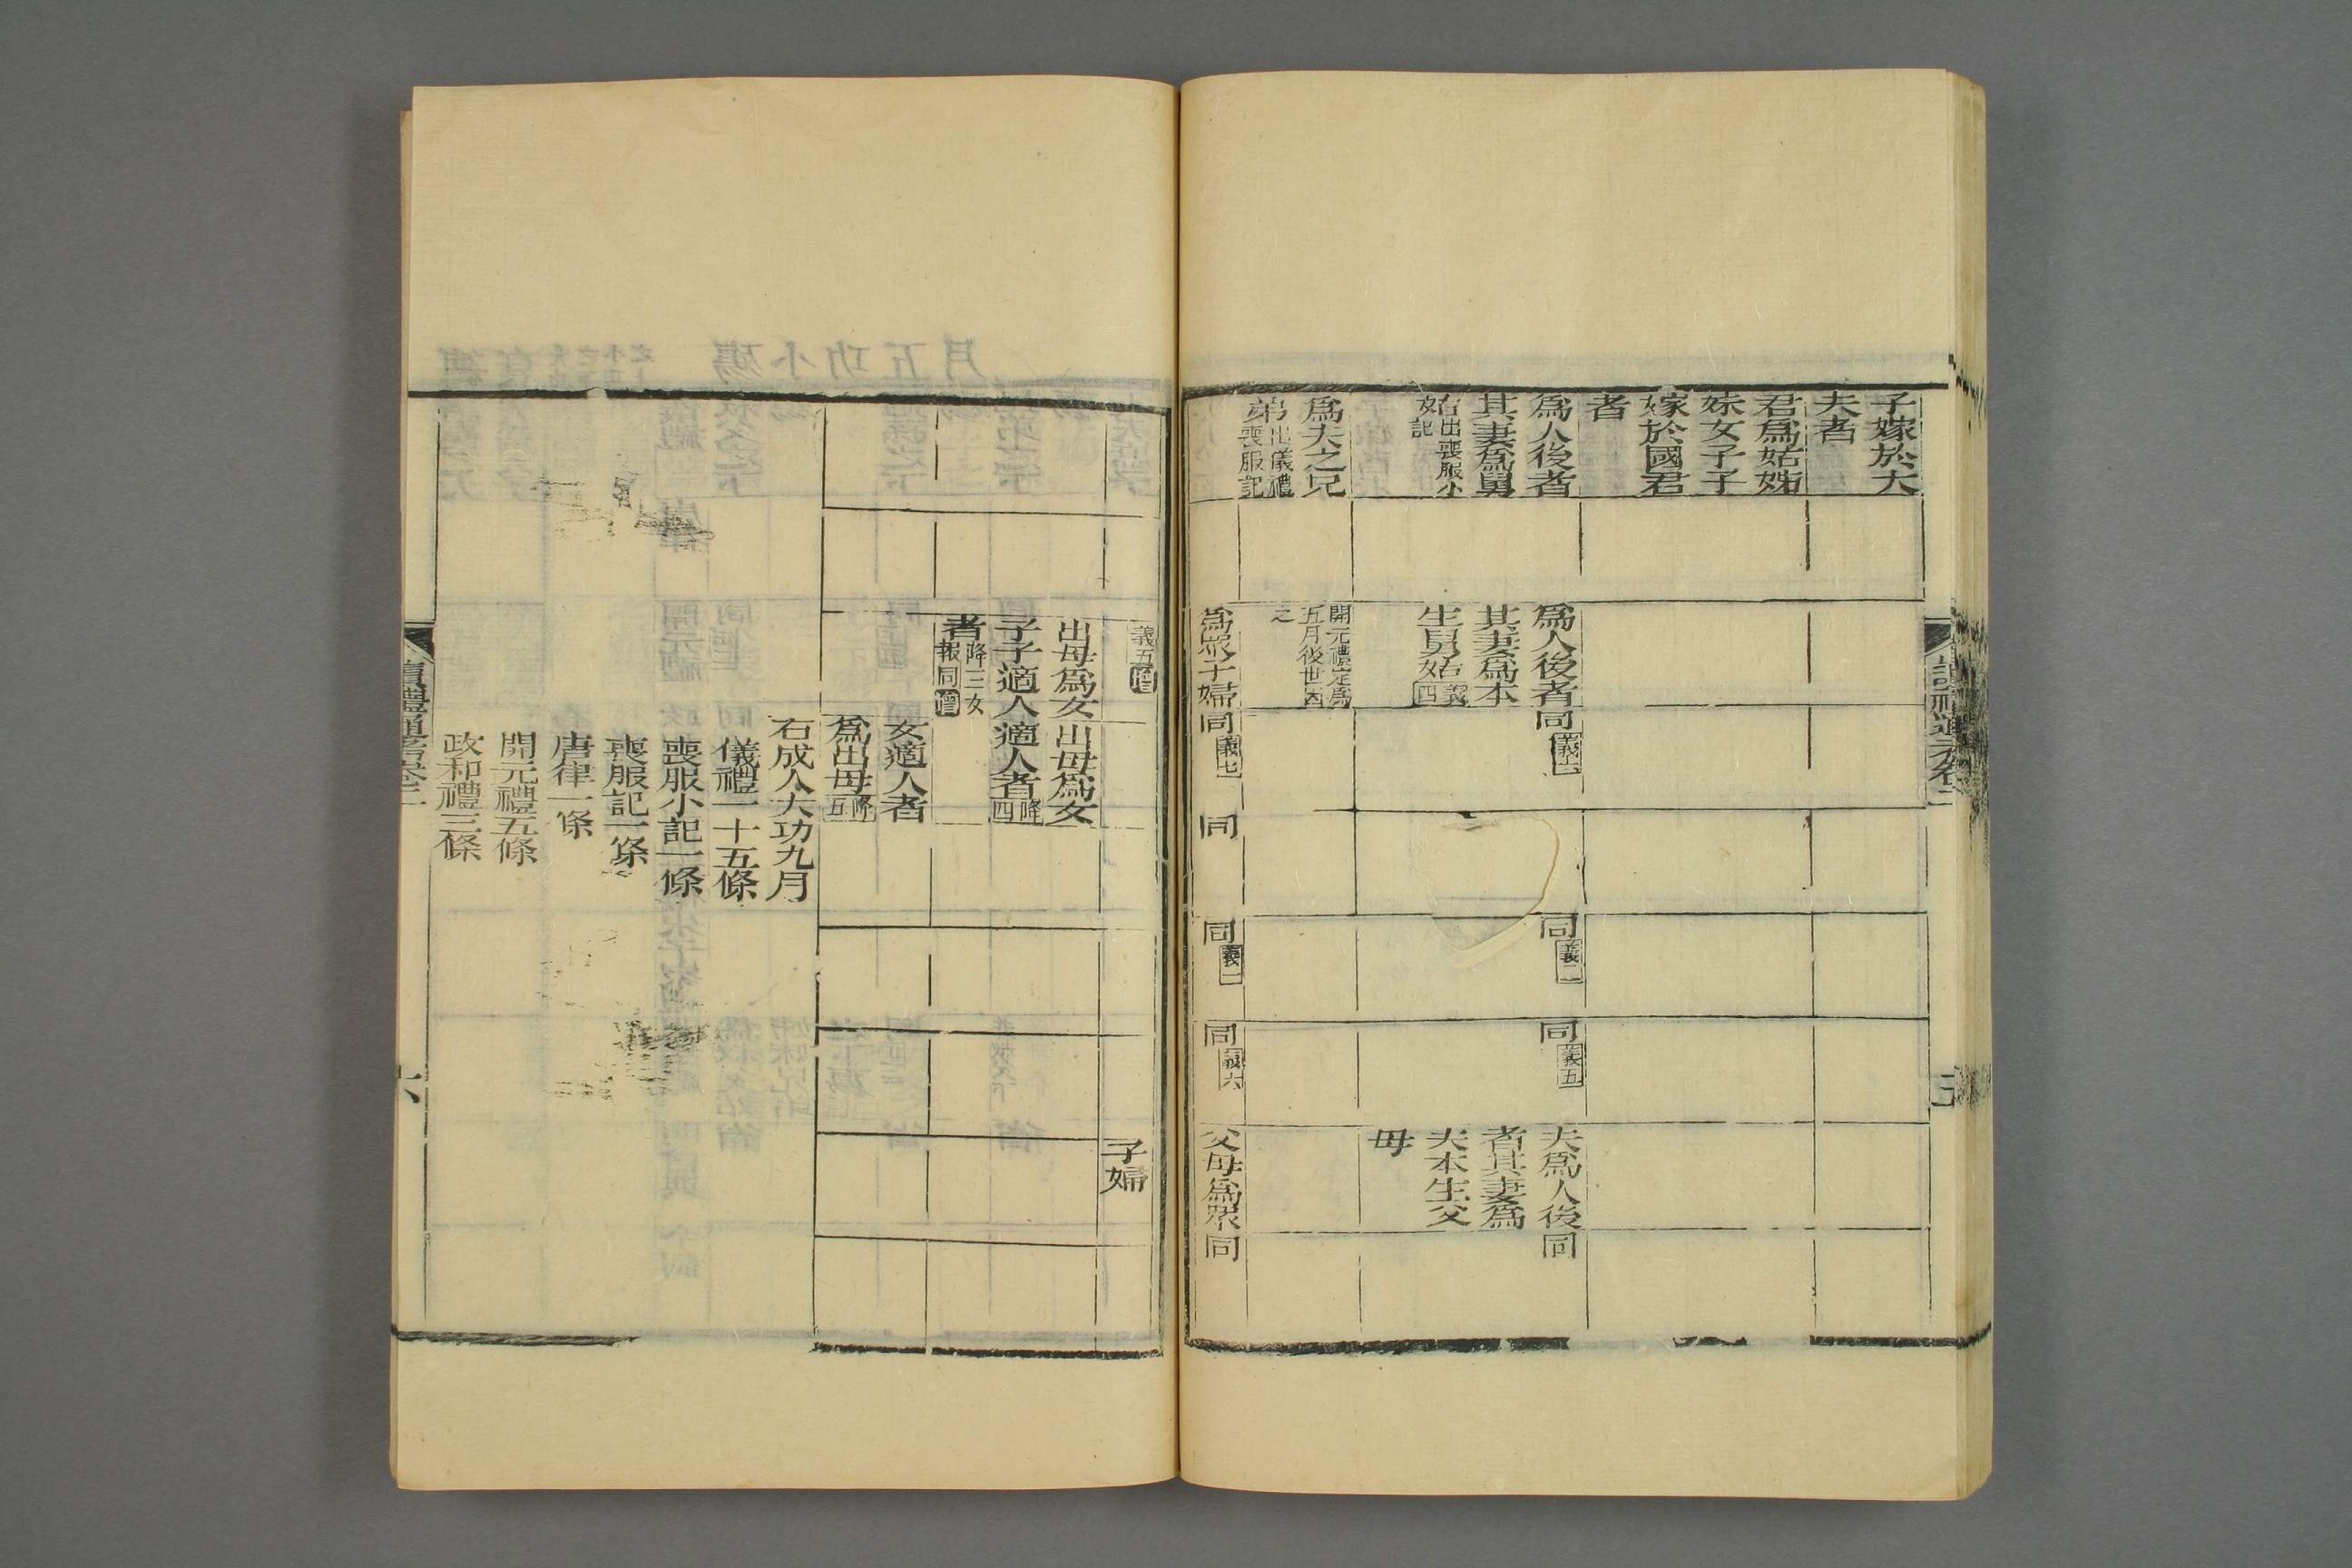 子嫁於大
夫者
君為姑姊
妹女子子
嫁於國君
者
為人後者
其妻為舅
姑出喪服小
記
為夫之兄
弟出儀禮
喪服記
為人後者
其妻為本
生舅姑義四
開元禮定為
五月後世因
之
為眾子婦
同義六
同義七
同
同義二
同義一
同義五
同義六
夫為人後
者其妻為
夫本生父
母
父母為眾
同
同
讀禮通考卷二
義五增
出母為女
子子適人
者降三女
報同增
出母為女
適人者降四
女適人者
為出母降五
子婦
右成人大功九月
儀禮一十五條
喪服小記一條
喪服記一條
唐律一條
開元禮五條
政和禮三條
讀禮通考卷二
六